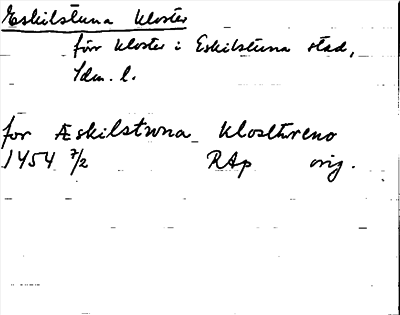 Eskilstuna kloster
förr kloster i Eskilstuna stad,
Sdm. l.
for Æskilstwna klosthreno
1454 7/2 RAp orig.